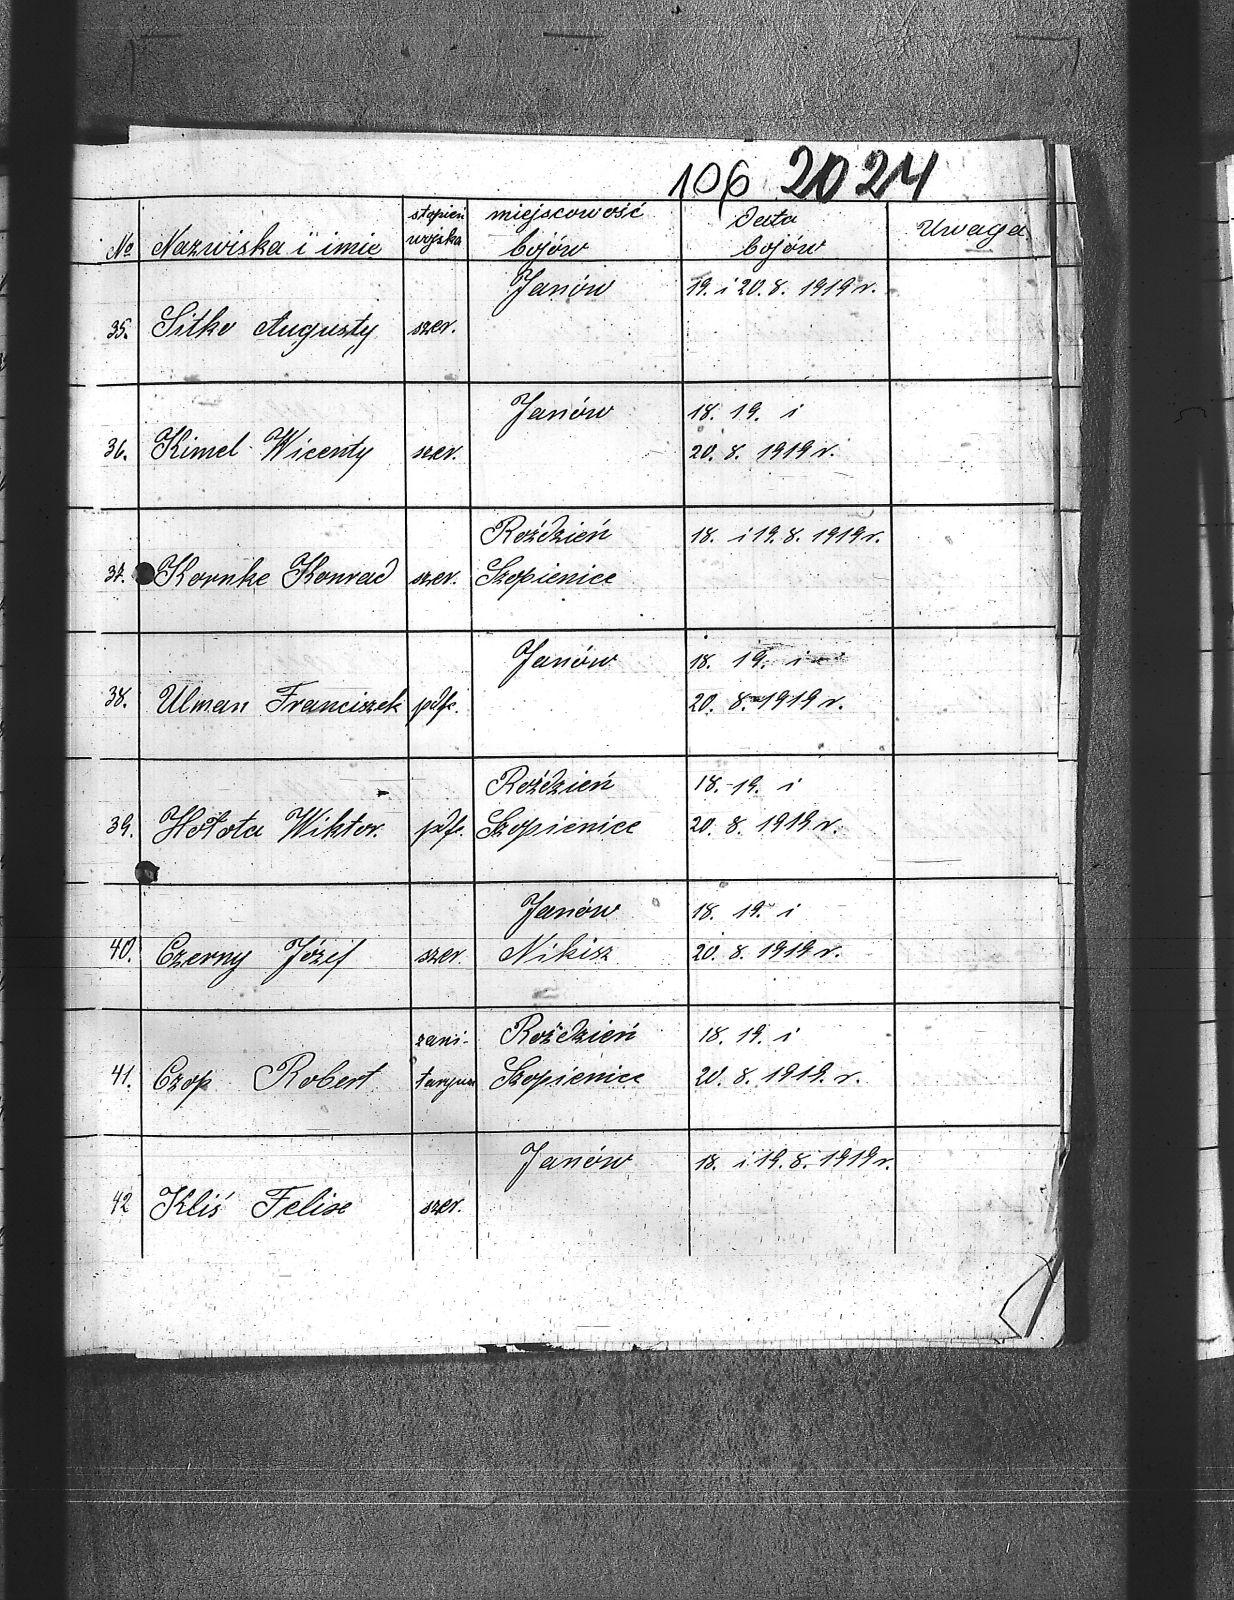 106 2024
№ Nazwiska i imie stopień wojska miejscowość bojów Data bojów Uwaga
Janów 19. i 20. 8. 1919 r.
35. Sitko Augusty szer.
Janów 18. 19. i
36. Kimel Wicenty szer. 20. 8. 1919 r.
Roździeń 18. i 19. 8. 1919 r.
37. Kornke Konrad szer. Szopienice
Janów 18. 19. i
38. Ulman Franciszek pdfr. 20. 8. 1919 r.
Roździeń 18. 19. i
39. Wiktor pdfr. Szopienice 20. 8. 1919 r.
Janów 18. 19. i
40. Czerny Józef szer. Nikisz 20. 8. 1919 r.
zani- Roździeń 18. 19. i
41. Czop Robert Szopienice 20. 8. 1919. r.
Janów 18. i 19. 8. 1919 r.
42 Kliś Felix szer.